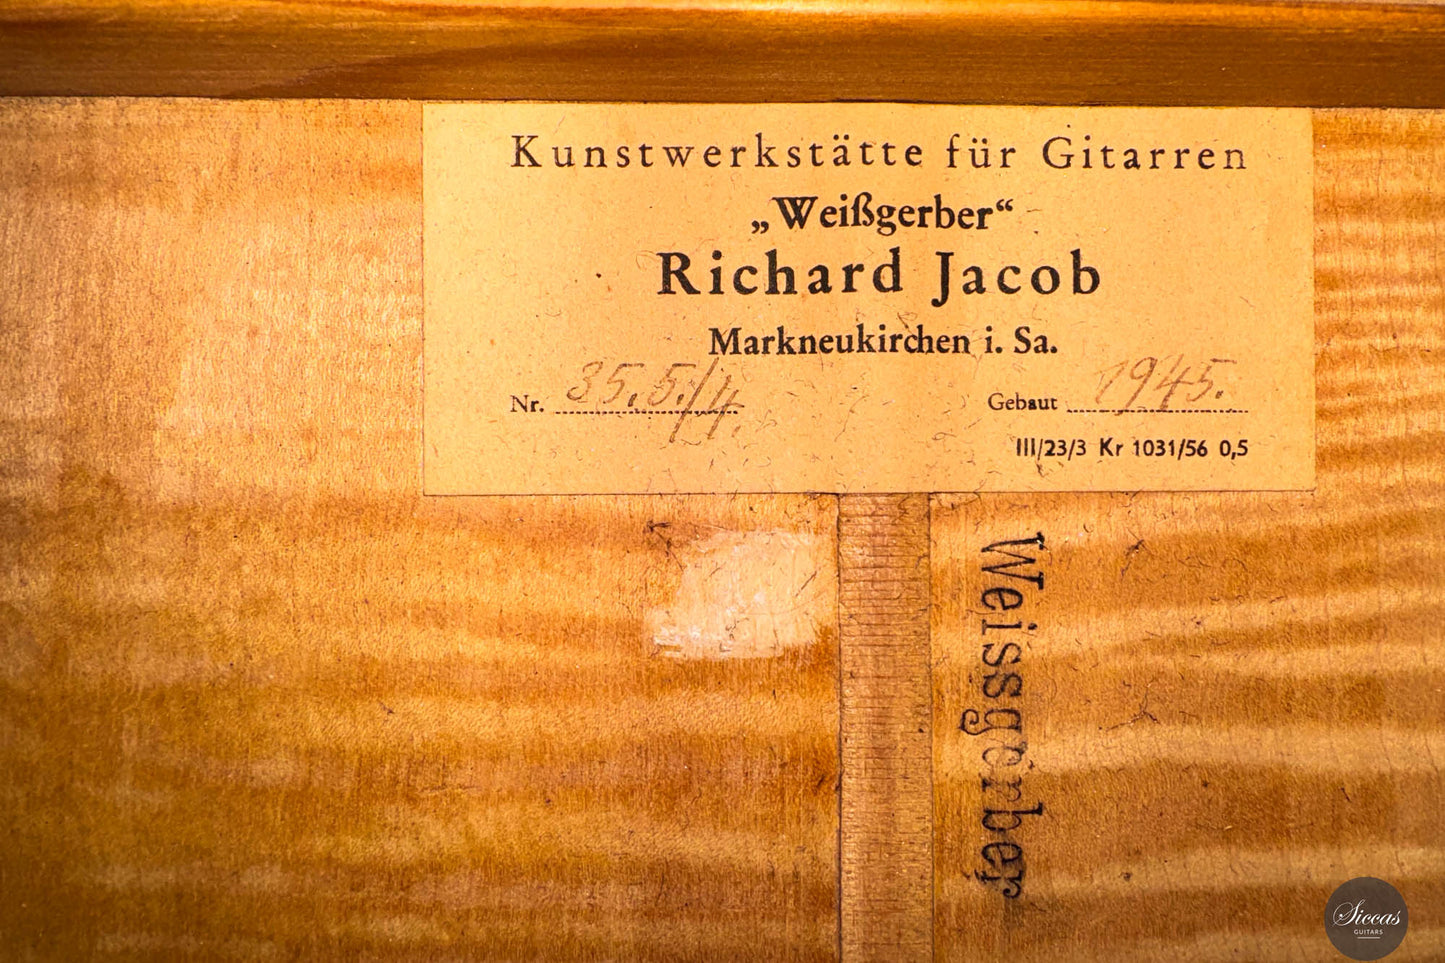 Kunstwerkstätte für Gitarren
„Weißgerber“
Richard Jacob
Markneukirchen i. Sa.
Nr. 35.5./4.
Gebaut 1945.
III/23/3 Kr 1031/56 0,5
Weissgerber
Siccas
GUITARS